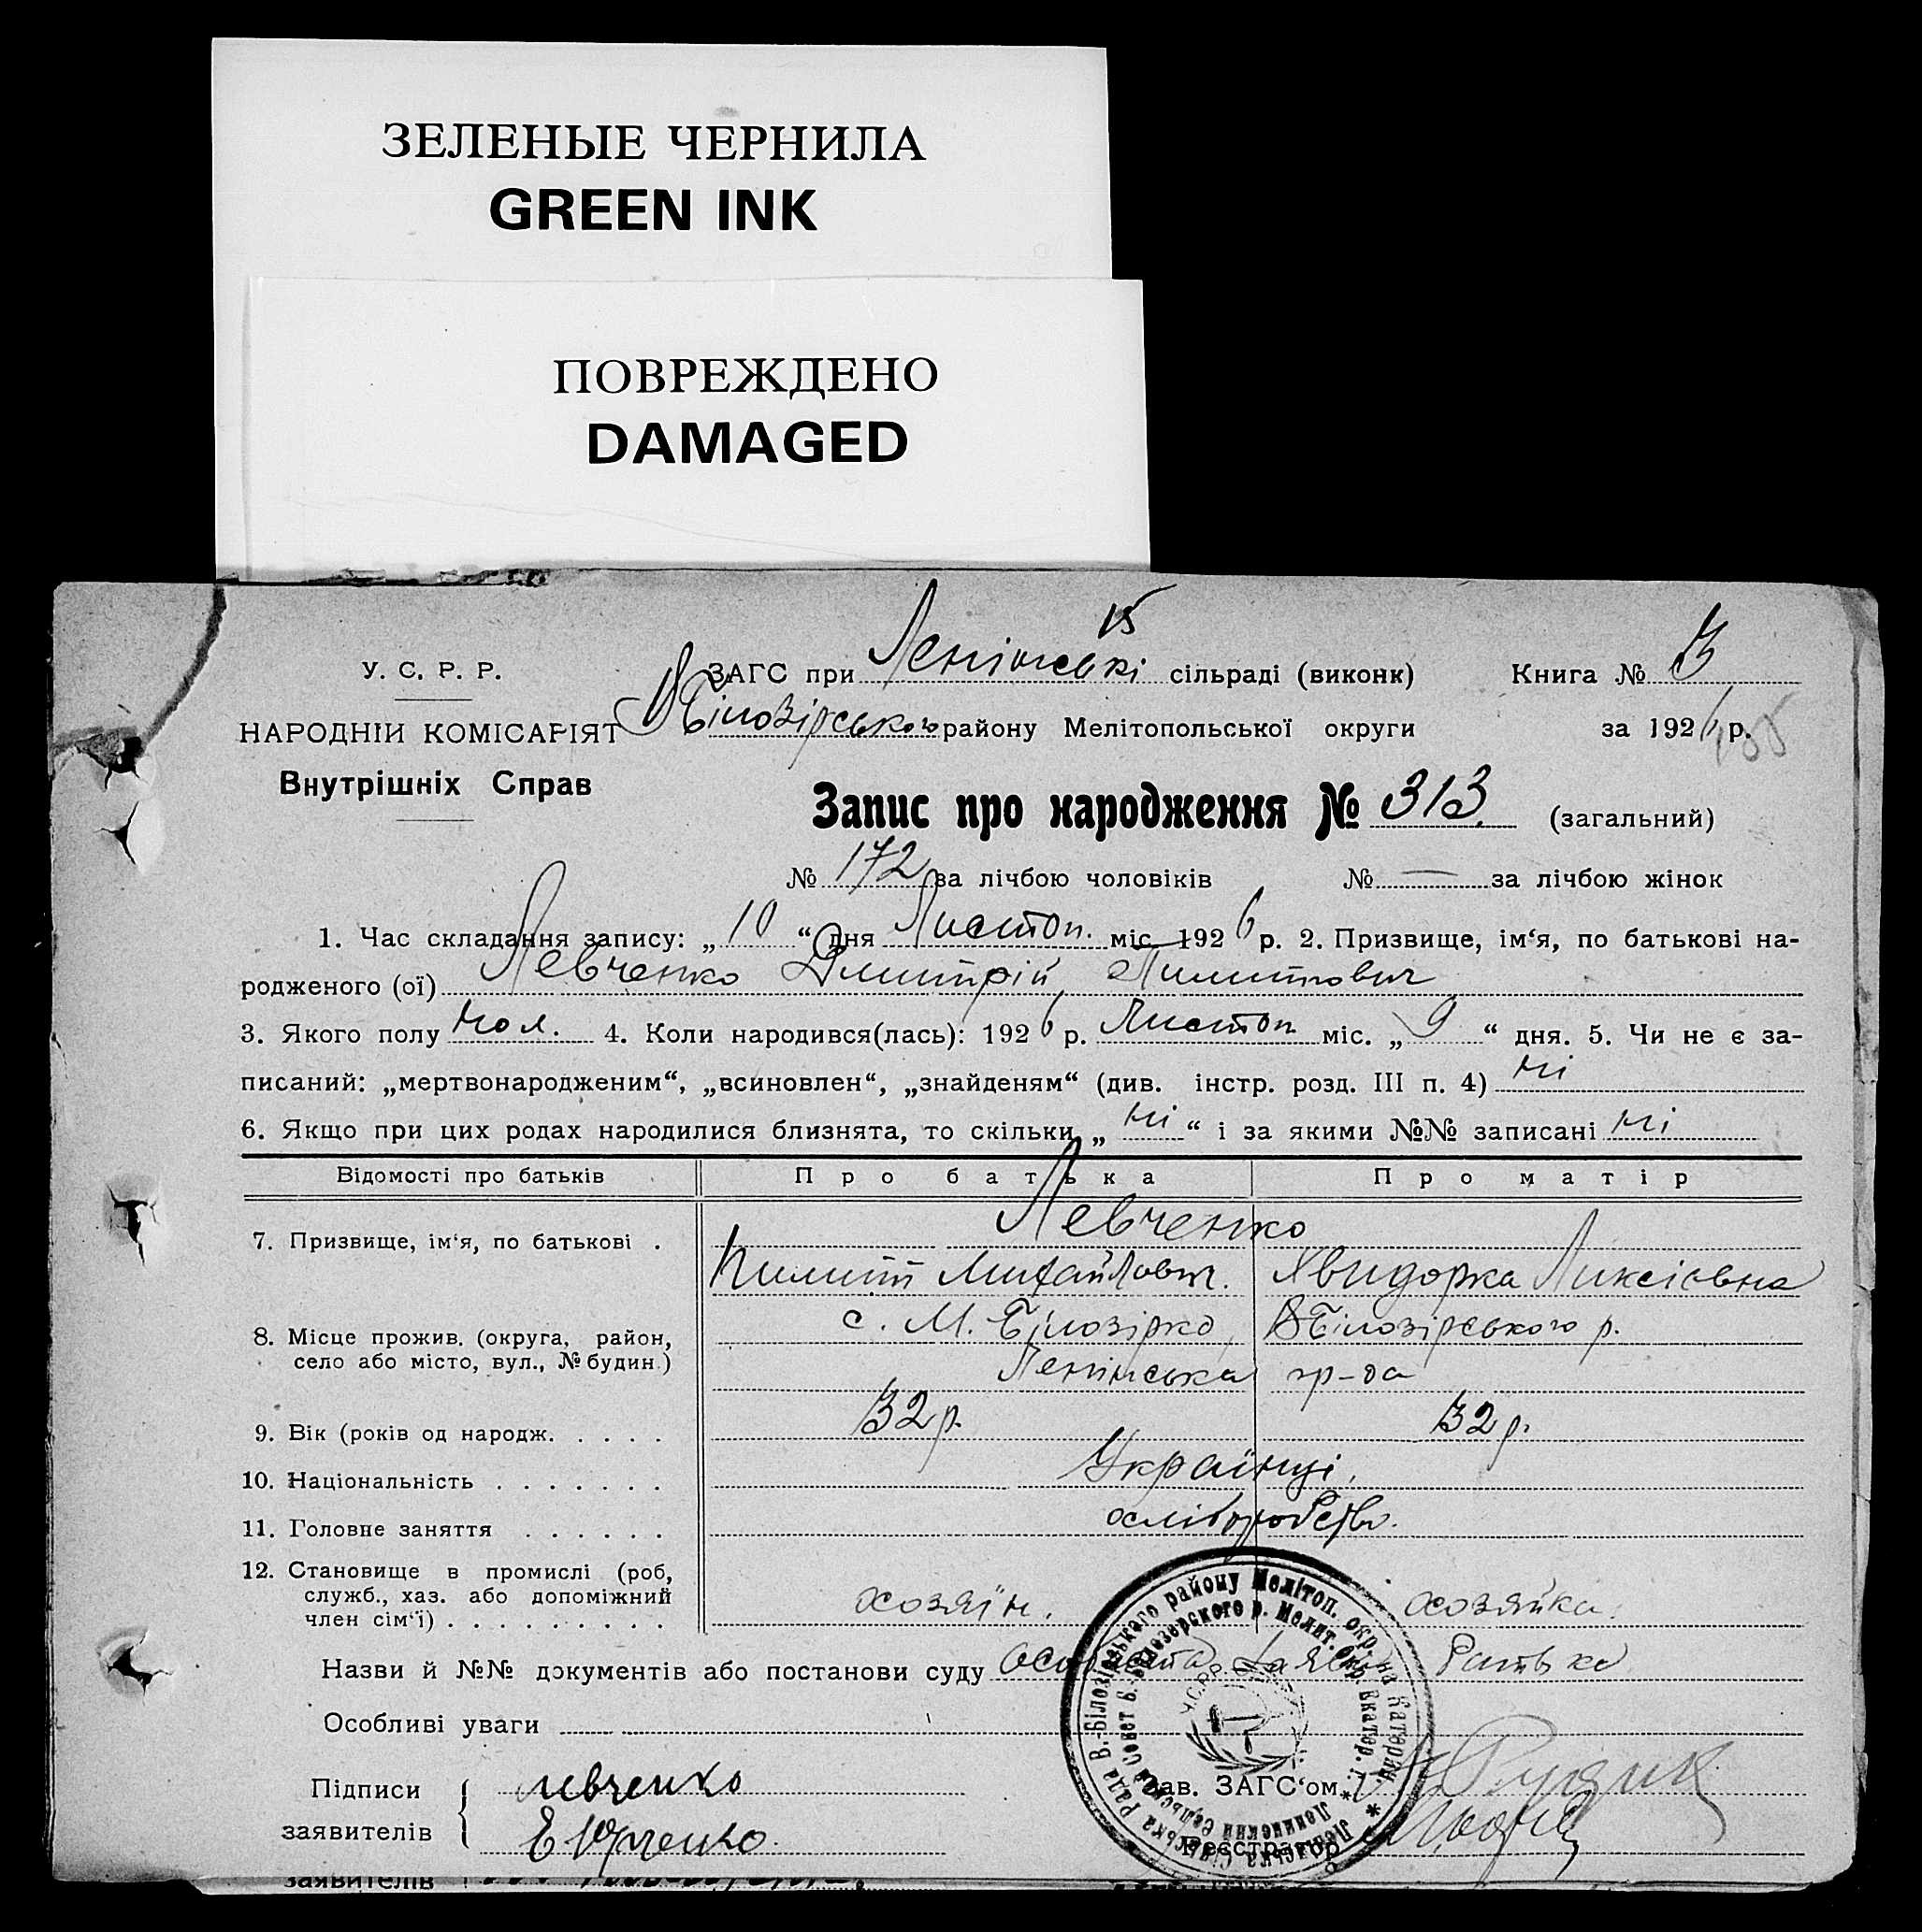 ЗЕЛЕНЫЕ ЧЕРНИЛА
GREEN INK
ПОВРЕЖДЕНО
DAMAGED
15
У. С. Р. Р. ЗАГС при Ленінські сільраді (виконк) Книга № 3
НАРОДНІЙ КОМІСАРІЯТ В Білозірського району Мелітопольської округи за 1926 р.
Внутрішніх Справ
Запис про народження № 313. (загальний)
№ 172 за лічбою чоловіків № — за лічбою жінок
1. Час складання запису: „ 10 “ дня Листоп. міс. 1926 р. 2. Призвище, ім‘я, по батькові на-
родженого (ої) Левченко Дмитрій Пилипович
3. Якого полу чол. 4. Коли народився(лась): 1926 р. Листоп. міс. „ 9 “ дня. 5. Чи не є за-
писаний: „мертвонародженим“, „всиновлен“, „знайденям“ (див. інстр. розд. III п. 4) ні
6. Якщо при цих родах народилися близнята, то скільки „ ні “ і за якими №№ записані ні
Відомості про батьків Про батька Про матір
7. Призвище, ім‘я, по батькові . Левченко
Пилип Михайлович. Хвидорка Ликсієвна
8. Місце прожив. (округа, район, с. М. Білозірка, ВБілозірського р.
село або місто, вул., № будин.) Ленінська гр-да
9. Вік (років од народж. . . . . 32 р. 32 р.
10. Національність . . . . . . . Українці.
11. Головне заняття . . . . . . хліборобство.
12. Становище в промислі (роб,
служб., хаз. або допоміжний хозяїн. хозяйка.
член сім‘ї) . . . . . . . . .
Назви й №№ документів або постанови суду особиста заява батька
Особливі уваги
Підписи Левченко Зав. ЗАГС‘ом
заявителів Реєстратор
Ленінська Сільська Рада В.-Білозірського району Мелітоп. окр. на Катерин.
Ленинский Сельский Совет Б. Белозерского р. Мелит. окр. Екатер. г.
У.С.Р.Р.
заявителів